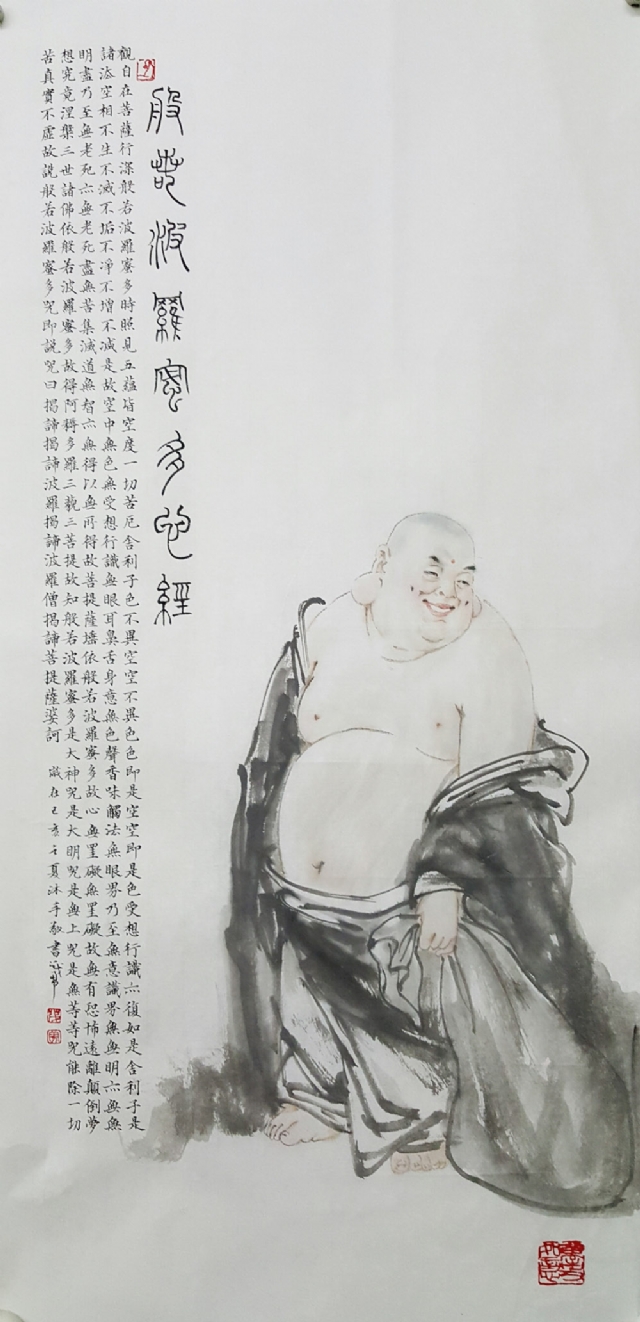 般若波羅蜜多心經
觀自在菩薩行深般若波羅蜜多時照見五蘊皆空度一切苦厄舍利子色不異空空不異色色即是空空即是色受想行識亦復如是舍利子是
諸法空相不生不滅不垢不淨不增不減是故空中無色無受想行識無眼耳鼻舌身意無色聲香味觸法無眼界乃至無意識界無無明亦無無
明盡乃至無老死亦無老死盡無苦集滅道無智亦無得以無所得故菩提薩埵依般若波羅蜜多故心無罣礙無罣礙故無有恐怖遠離顛倒夢
想究竟涅槃三世諸佛依般若波羅蜜多故得阿耨多羅三藐三菩提故知般若波羅蜜多是大神咒是大明咒是無上咒是無等等咒能除一切
苦真實不虛故說般若波羅蜜多咒即說咒曰揭諦揭諦波羅揭諦波羅僧揭諦菩提薩婆訶 歲在己亥于夏沐手敬書